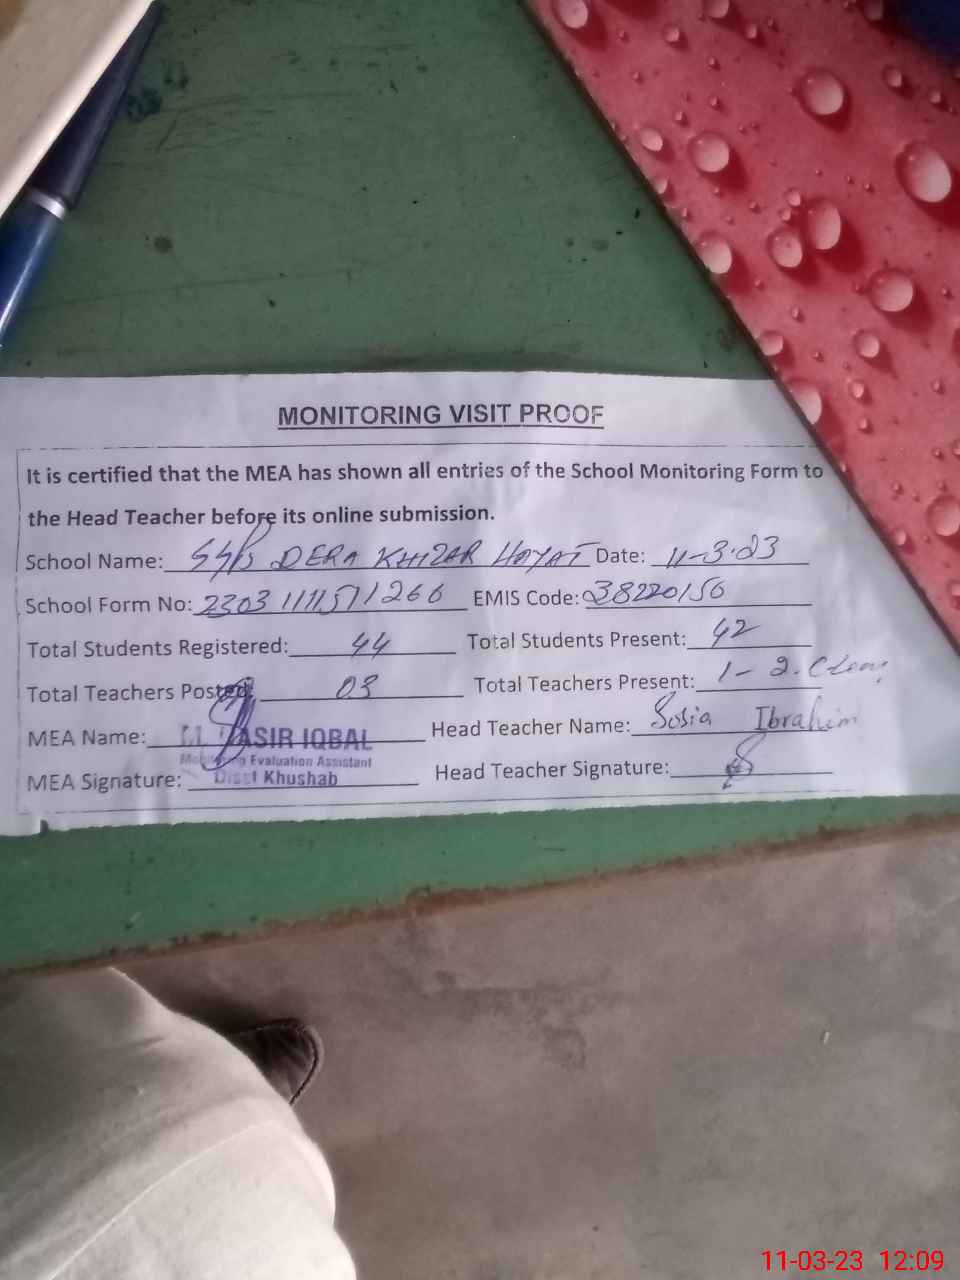 MONITORING VISIT PROOF
It is certified that the MEA has shown all entries of the School Monitoring Form to
the Head Teacher before its online submission.
School Name: DERA KHIZAR HAYAT Date: 11-3-23
School Form No: EMIS Code: 38220156
Total Students Registered: 44 Total Students Present: 42
Total Teachers Posted: 03 Total Teachers Present: 1-2.
MEA Name: ASIR IQBAL Head Teacher Name: Sosia Ibrahim
Monitoring Evaluation Assistant
MEA Signature: Disst Khushab Head Teacher Signature:
11-03-23 12:09